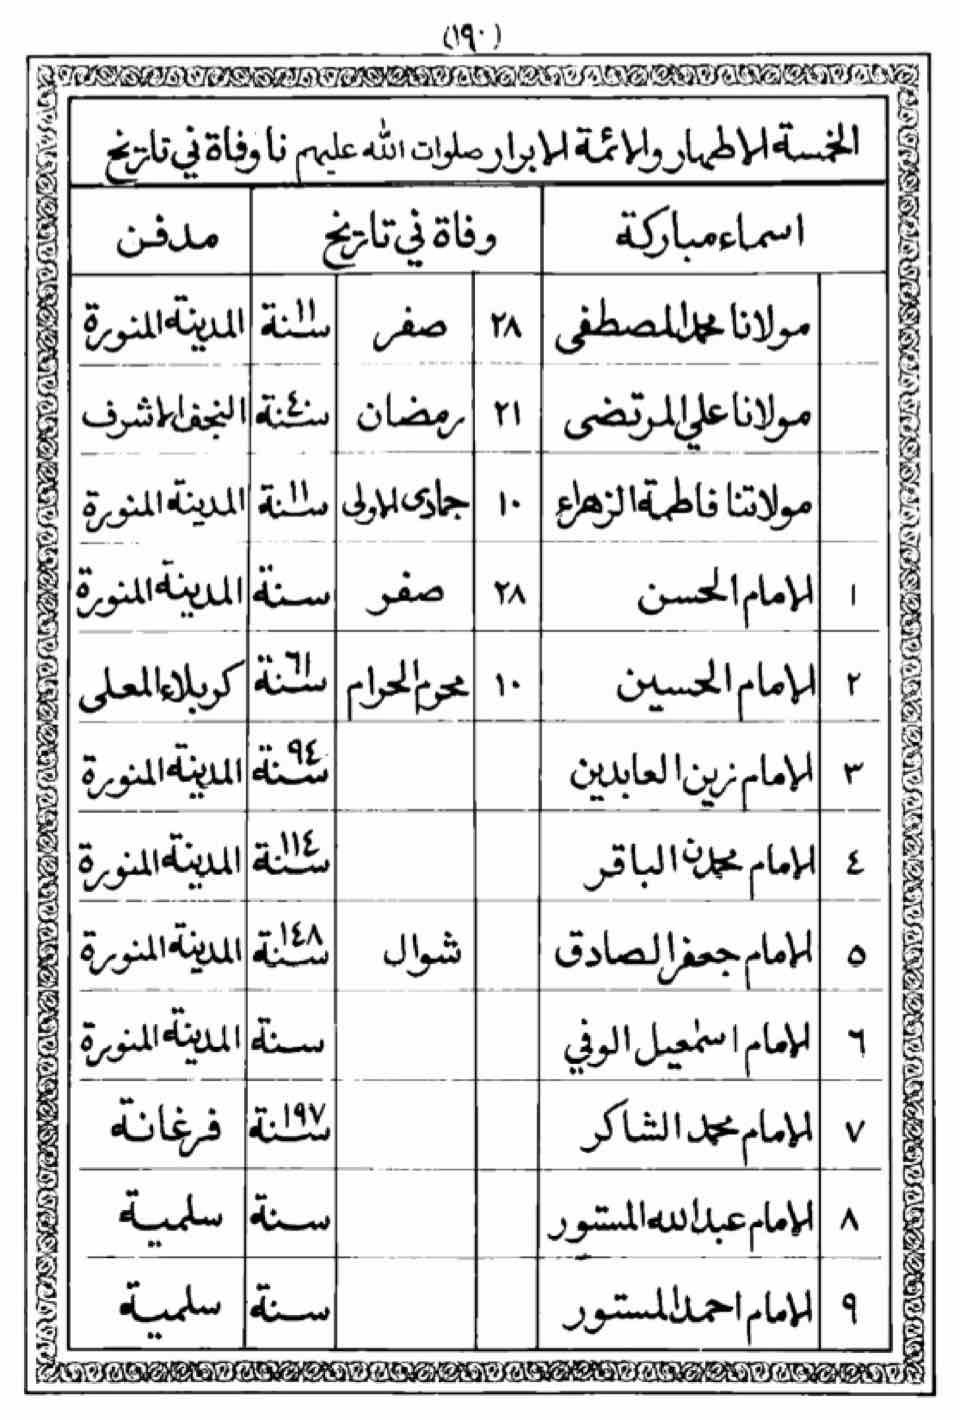 (١٩٠)
الخمسة الاطهار والائمة الابرار صلوات الله عليهم نا وفاة ني تاريخ
اسماء مباركة وفاة ني تاريخ مدفن
مولانا محمد المصطفى ٢٨ صفر سنة ١١ المدينة المنورة
مولانا علي المرتضى ٢١ رمضان سنة ٤٠ النجف الاشرف
مولاتنا فاطمة الزهراء ١٠ جمادى الاولى سنة ١١ المدينة المنورة
١ الامام الحسن ٢٨ صفر سنة المدينة المنورة
٢ الامام الحسين ١٠ محرم الحرام سنة ٦١ كربلاء المعلى
٣ الامام زين العابدين سنة ٩٤ المدينة المنورة
٤ الامام محمدن الباقر سنة ١١٤ المدينة المنورة
٥ الامام جعفر الصادق شوال سنة ١٤٨ المدينة المنورة
٦ الامام اسمعيل الوفي سنة المدينة المنورة
٧ الامام محمد الشاكر سنة ١٩٧ فرغانة
٨ الامام عبد الله المستور سنة سلمية
٩ الامام احمد المستور سنة سلمية